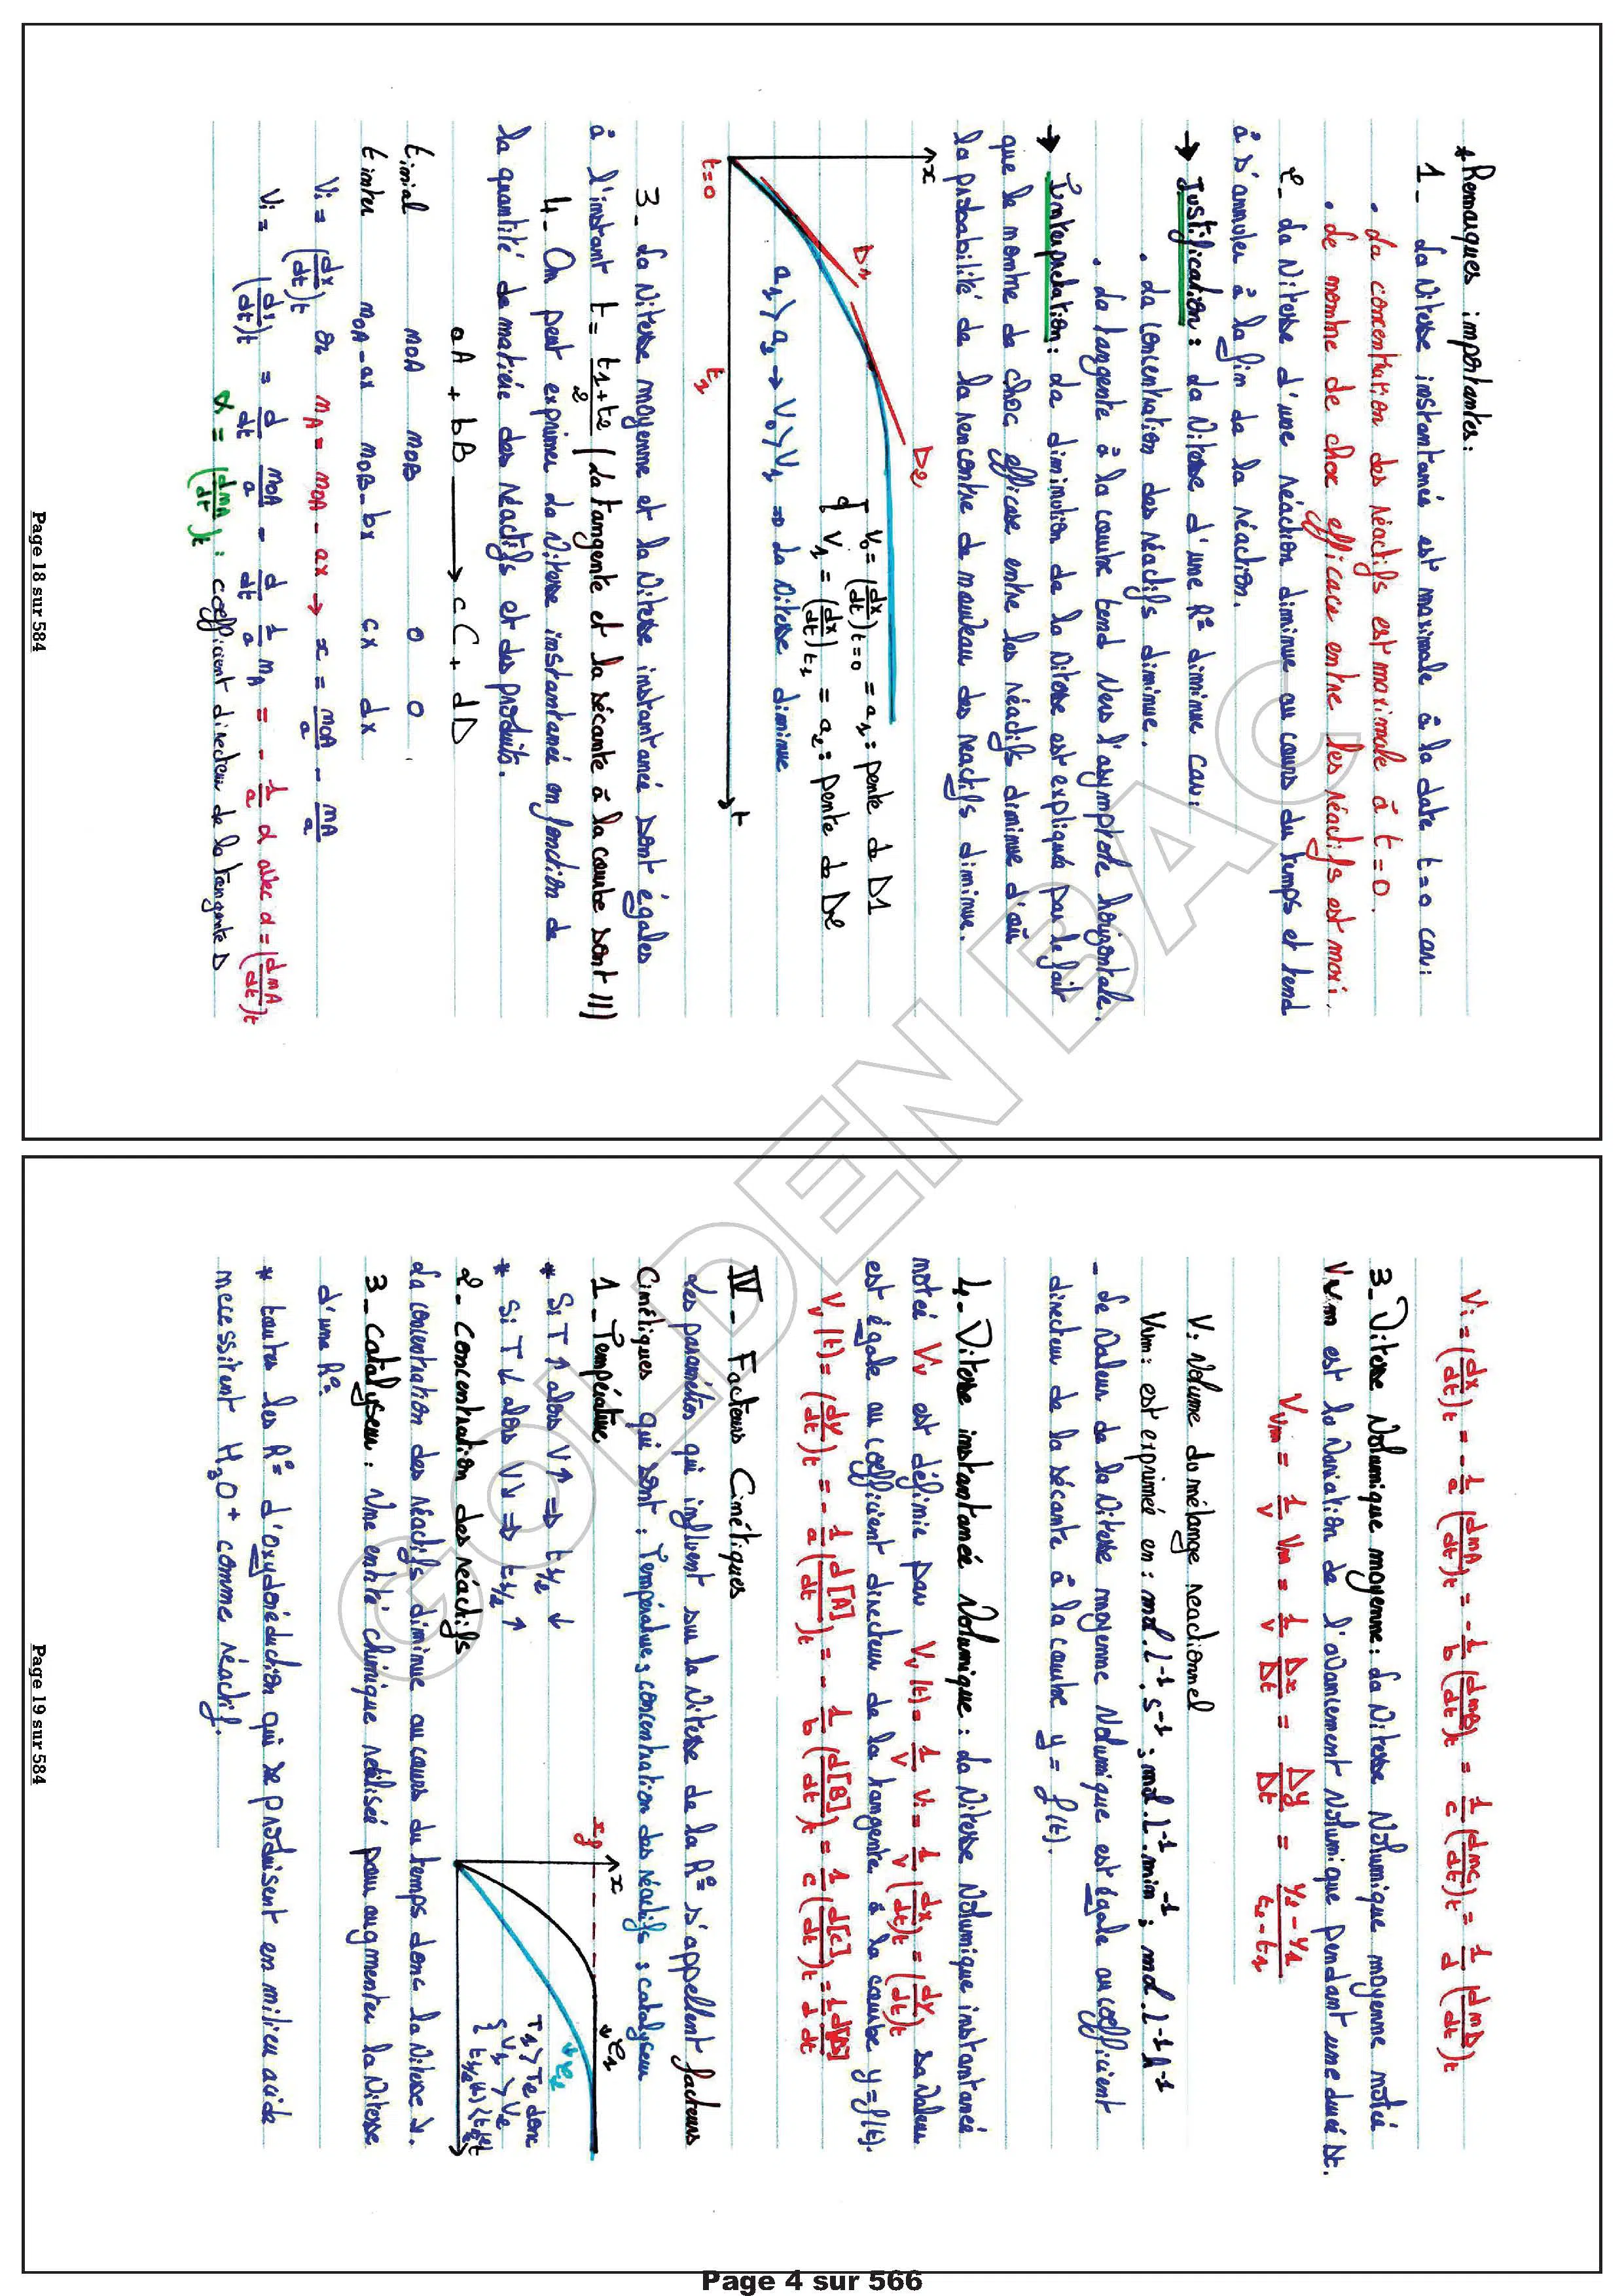 * Remarques importantes :
1 - La vitesse instantanée est maximale à la date t=0 car :
• La concentration des réactifs est maximale à t=0.
• Le nombre de choc efficace entre les réactifs est maxi.
2 - La vitesse d'une réaction diminue au cours du temps et tend
à s'annuler à la fin de la réaction.
→ Justification : La vitesse d'une R° diminue car :
• La concentration des réactifs diminue.
• La tangente à la courbe tend vers l'asymptote horizontale.
→ Interpretation : La diminution de la vitesse est expliquée par le fait
que le nombre de choc efficace entre les réactifs diminue d'où
la probabilité de la rencontre de nouveau des réactifs diminue.
x
D1
D2
V0 = (dx/dt)t=0 = a1 : pente de D1
V1 = (dx/dt)t1 = a2 : pente de D2
a1 > a2 → V0 > V1 ⇒ La vitesse diminue
t=0
t1
t
3 - La vitesse moyenne et la vitesse instantanée sont égales
à l'instant t = (t1+t2)/2 (La tangente et la sécante à la courbe sont //)
4 - On peut exprimer la vitesse instantanée en fonction de
la quantité de matière des réactifs et des produits.
aA + bB → cC + dD
t inial n0A n0B 0 0
t inter n0A-ax n0B-bx cx dx
Vi = (dx/dt)t or nA = n0A - ax → x = n0A/a - nA/a
Vi = (dx/dt)t = d/dt n0A/a - d/dt 1/a nA = - 1/a α avec α = (dnA/dt)t
α = (dnA/dt)t : coefficient directeur de la tangente D
Page 18 sur 584
Vi = (dx/dt)t = -1/a (dnA/dt)t = -1/b (dnB/dt)t = 1/c (dnC/dt)t = 1/d (dnD/dt)t
3 - Vitesse Volumique moyenne : La vitesse Volumique moyenne notée
Vvm est la variation de l'avancement volumique pendant une durée Δt.
Vvm = 1/V Vm = 1/V Δx/Δt = Δy/Δt = (y2-y1)/(t2-t1)
V : Volume du mélange reactionnel
Vvm : est exprimée en : mol.L-1.s-1 ; mol.L-1.min-1 ; mol.L-1.h-1
- La valeur de la vitesse moyenne volumique est égale au coefficient
directeur de la sécante à la courbe y = f(t).
4 - Vitesse instantanée Volumique : La vitesse volumique instantanée
notée Vv est définie par Vv(t) = 1/V Vi = 1/V (dx/dt)t = (dy/dt)t sa valeur
est égale au coefficient directeur de la tangente à la courbe y=f(t).
Vv(t) = (dy/dt)t = - 1/a (d[A]/dt)t = - 1/b (d[B]/dt)t = 1/c (d[C]/dt)t = 1/d d[D]/dt
IV - Facteurs Cinétiques
Les paramètres qui influent sur la vitesse de la R° s'appellent facteurs
Cinétiques qui sont : Température ; concentration des réactifs ; catalyseur
1 - Température
* Si T ↑ alors V ↑ ⇒ t1/2 ↓
* Si T ↓ alors V ↓ ⇒ t1/2 ↑
x
xf
C1
C2
T1 > T2 donc
{ V1 > V2
{ t1/2(1) < t1/2(2)
t
2 - Concentration des réactifs
La concentration des réactifs diminue au cours du temps donc la vitesse ↓.
3 - Catalyseur : Une entité chimique utilisée pour augmenter la vitesse
d'une R°.
* toutes les R° d'oxydoréduction qui se produisent en milieu acide
necessitent H3O+ comme réactif.
Page 19 sur 584
GOLDEN BAC
Page 4 sur 566